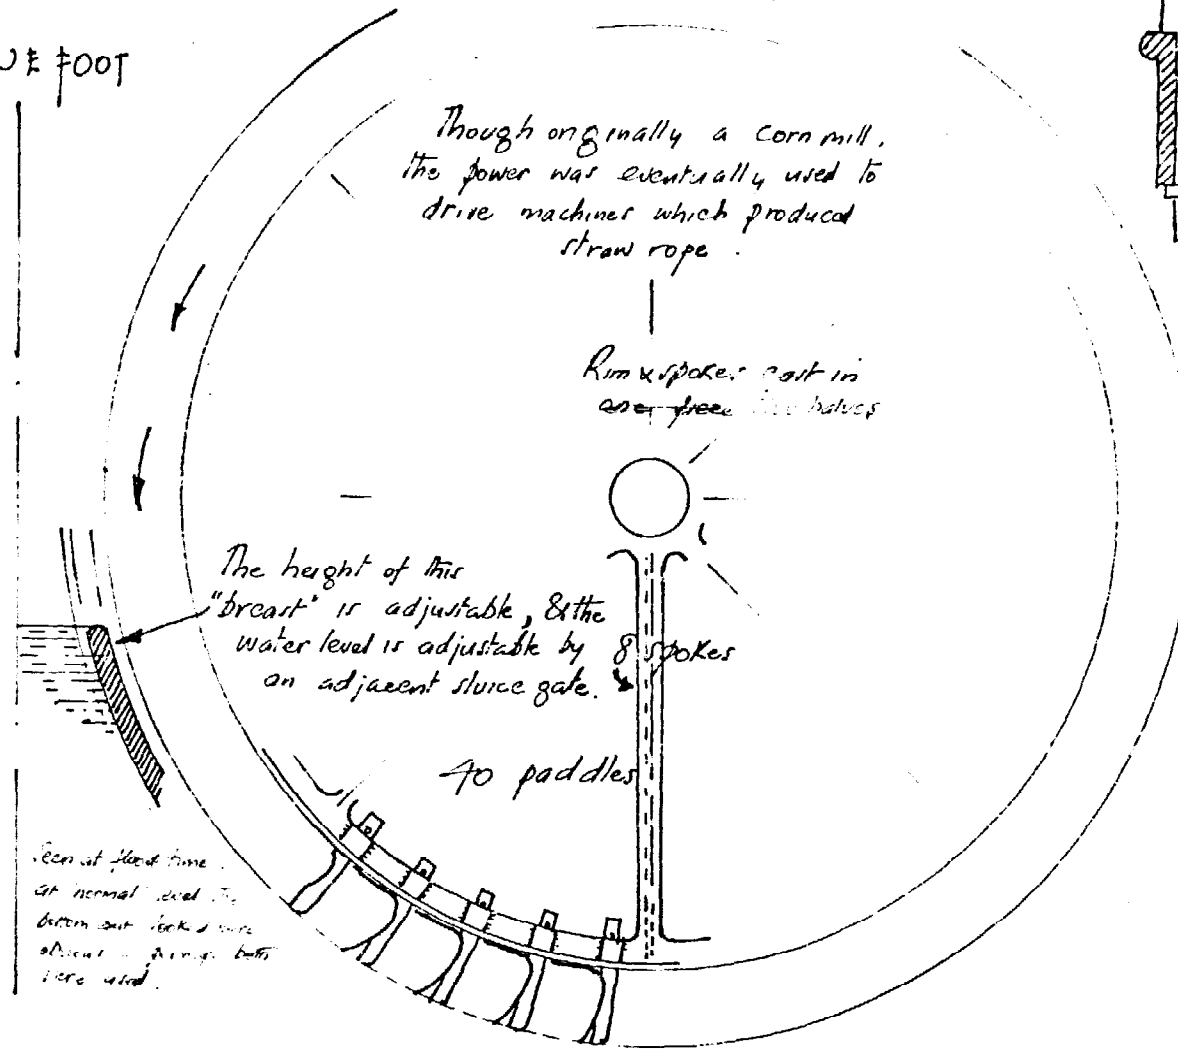 FOOT
Though originally a corn mill,
the power was eventually used to
drive machines which produced
straw rope.
Rim & spokes cast in
one piece two halves
The height of this
"breast" is adjustable, & the
water level is adjustable by
an adjacent sluice gate.
8 spokes
40 paddles
Seen at flood time.
at normal level the
bottom out looked more
both
were used.